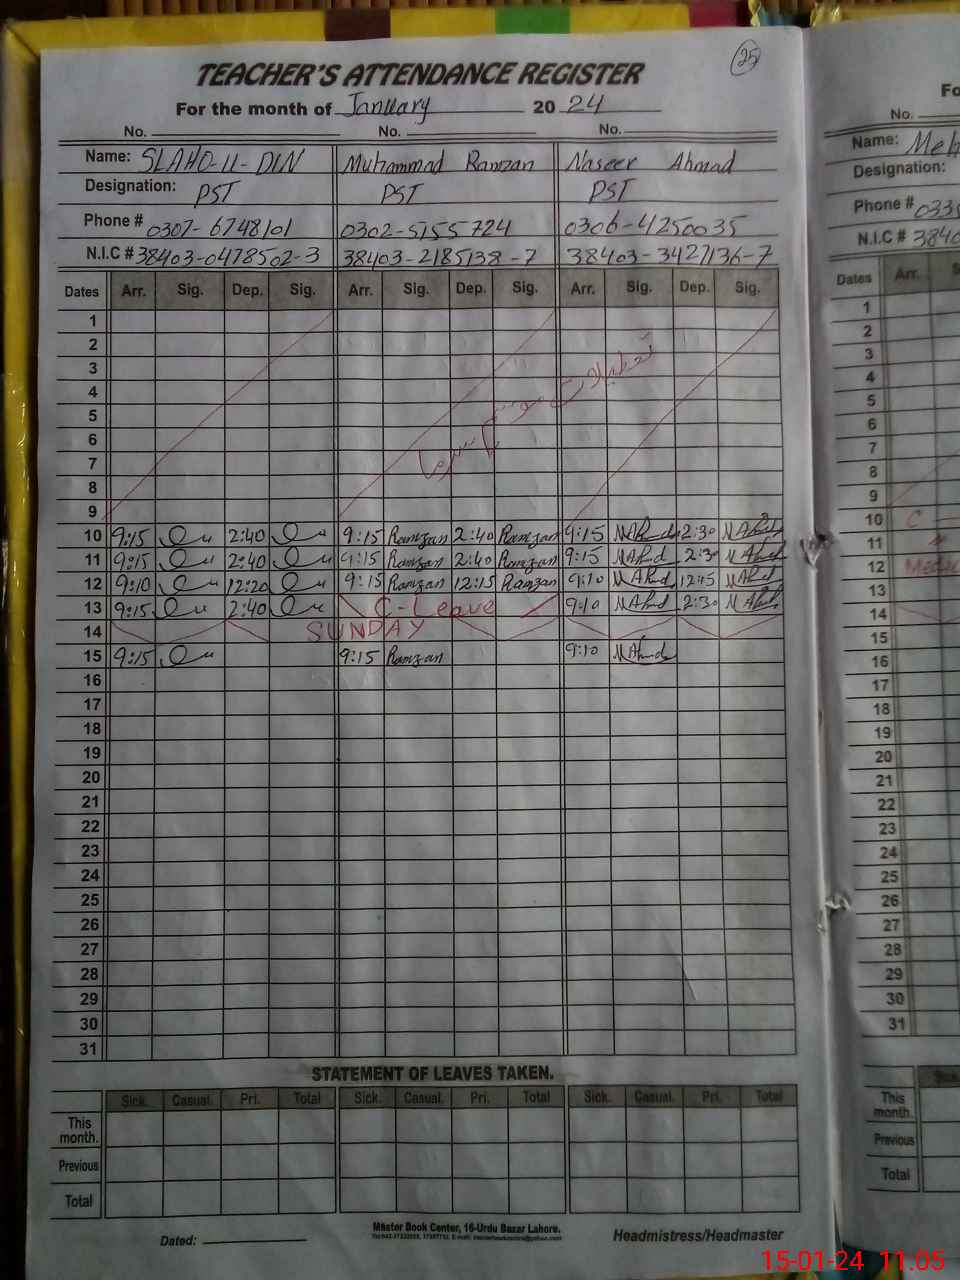 25
TEACHER'S ATTENDANCE REGISTER
For the month of January 20 24
No. No. No.
Name: SLAHO-U-DIN Muhammad Ramzan Naseer Ahmad
Designation: PST PST PST
Phone # 0307-6748101 0302-5155724 0306-4250035
N.I.C # 38403-0478502-3 38403-2185138-7 38403-3427136-7
Dates Arr. Sig. Dep. Sig. Arr. Sig. Dep. Sig. Arr. Sig. Dep. Sig.
1
2
3
4
5
6
7
8
9
تعطیلات موسم سرما
10 9:15 2:40 9:15 Ramzan 2:40 Ramzan 9:15 NAhmd 2:30 NAhmd
11 9:15 2:40 9:15 Ramzan 2:40 Ramzan 9:15 NAhmd 2:30 NAhmd
12 9:10 12:20 9:15 Ramzan 12:15 Ramzan 9:10 NAhmd 12:15 NAhmd
13 9:15 2:40 C-Leave 9:10 NAhmd 2:30 NAhmd
14 SUNDAY
15 9:15 9:15 Ramzan 9:10 NAhmd
16
17
18
19
20
21
22
23
24
25
26
27
28
29
30
31
STATEMENT OF LEAVES TAKEN.
Sick. Casual. Pri. Total Sick. Casual. Pri. Total Sick. Casual. Pri. Total
This month.
Previous
Total
Dated:
Master Book Center, 16-Urdu Bazar Lahore.
Headmistress/Headmaster
No.
Name: Meh
Designation:
Phone #
N.I.C # 3840
Dates Arr.
1
2
3
4
5
6
7
8
9
10 C
11
12
13
14
15
16
17
18
19
20
21
22
23
24
25
26
27
28
29
30
31
This month.
Previous
Total
15-01-24 11:05